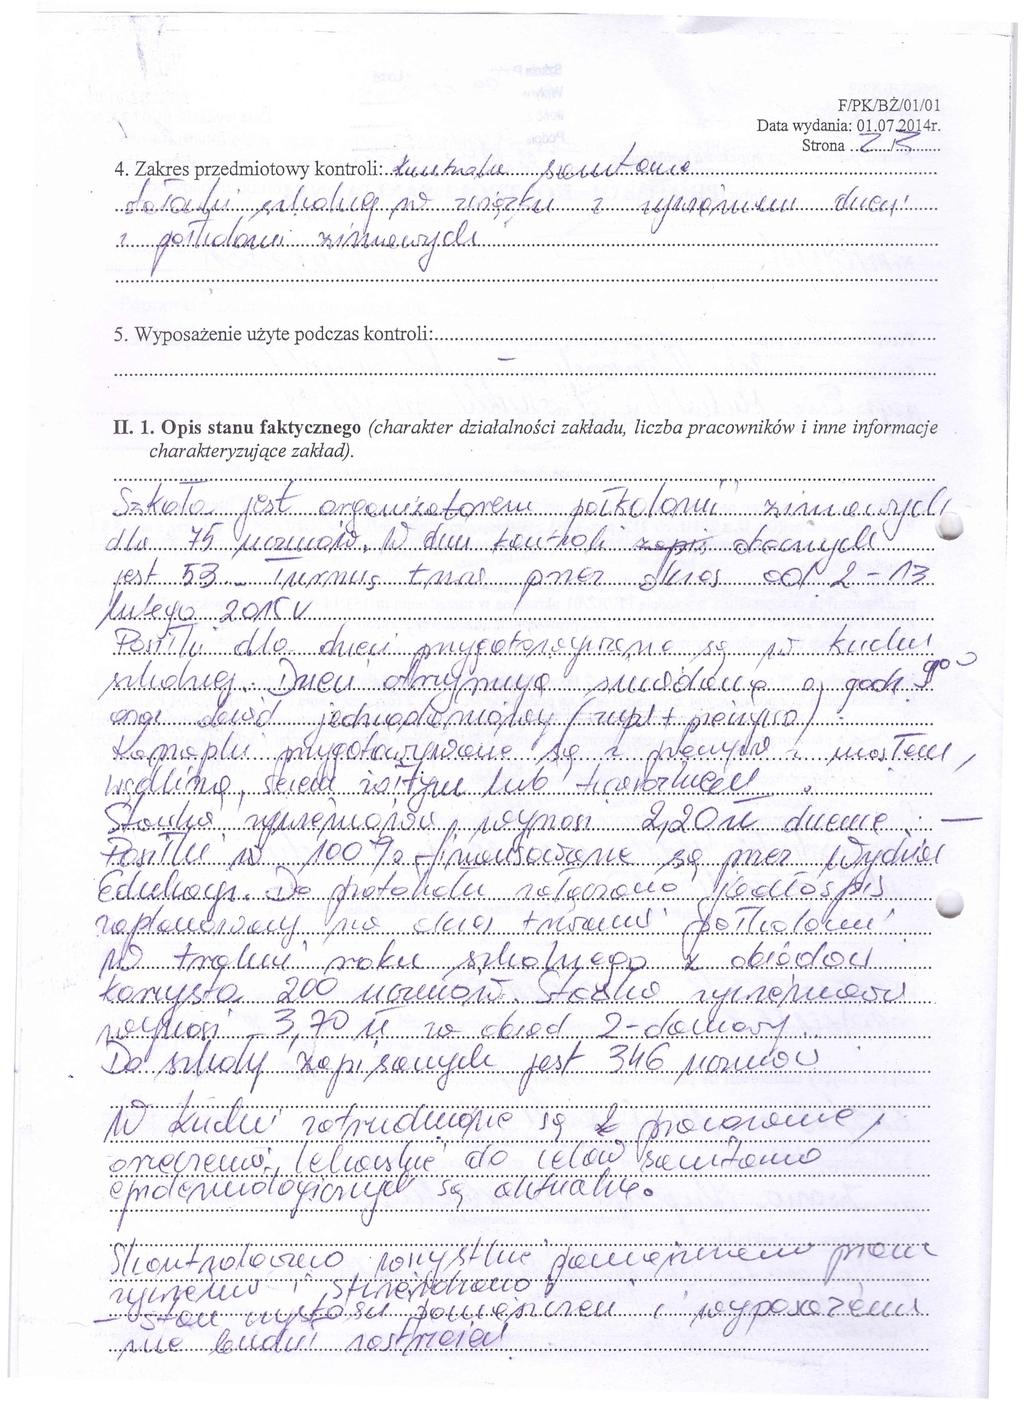 F/PK/BŻ/01/01
Data wydania: 01.07.2014r.
Strona ..2...../3........
4. Zakres przedmiotowy kontroli: kontrola sanitarna
stołówki szkolnej w związku z żywieniem dzieci
z półkolonii zimowych
5. Wyposażenie użyte podczas kontroli:
–
II. 1. Opis stanu faktycznego (charakter działalności zakładu, liczba pracowników i inne informacje
charakteryzujące zakład).
Szkoła jest organizatorem półkolonii zimowych
dla 75 uczniów. W dniu kontroli obecnych
jest 53 – Turnus trwa przez okres od 2 – 13
lutego 2015 r
Posiłki dla dzieci przygotowywane są w kuchni
szkolnej. Dzieci otrzymują śniadanie o godz 9⁰⁰
oraz obiad jednodaniowy (zupa + pieczywo).
Kanapki przygotowywane są z pieczywa z masłem,
wędliną, serem żółtym lub twarożkiem.
Stawka żywieniowa wynosi 2,20 zł dziennie. –
Posiłki w 100% finansowane są przez Wydział
Edukacji. Do protokołu załączono jadłospis
zaplanowany na okres trwania półkolonii
W trakcie roku szkolnego z obiadów
korzysta 200 uczniów. Stawka żywieniowa
wynosi – 3,70 zł za obiad 2-daniowy.
Do szkoły zapisanych jest 346 uczniów
W kuchni zatrudnione są 2 pracownice,
orzeczenia lekarskie do celów sanitarno
epidemiologicznych są aktualne.
Skontrolowano wszystkie pomieszczenia pionu
żywienia i stwierdzono:
– stan czystości pomieszczeń i wyposażenia
nie budzi zastrzeżeń